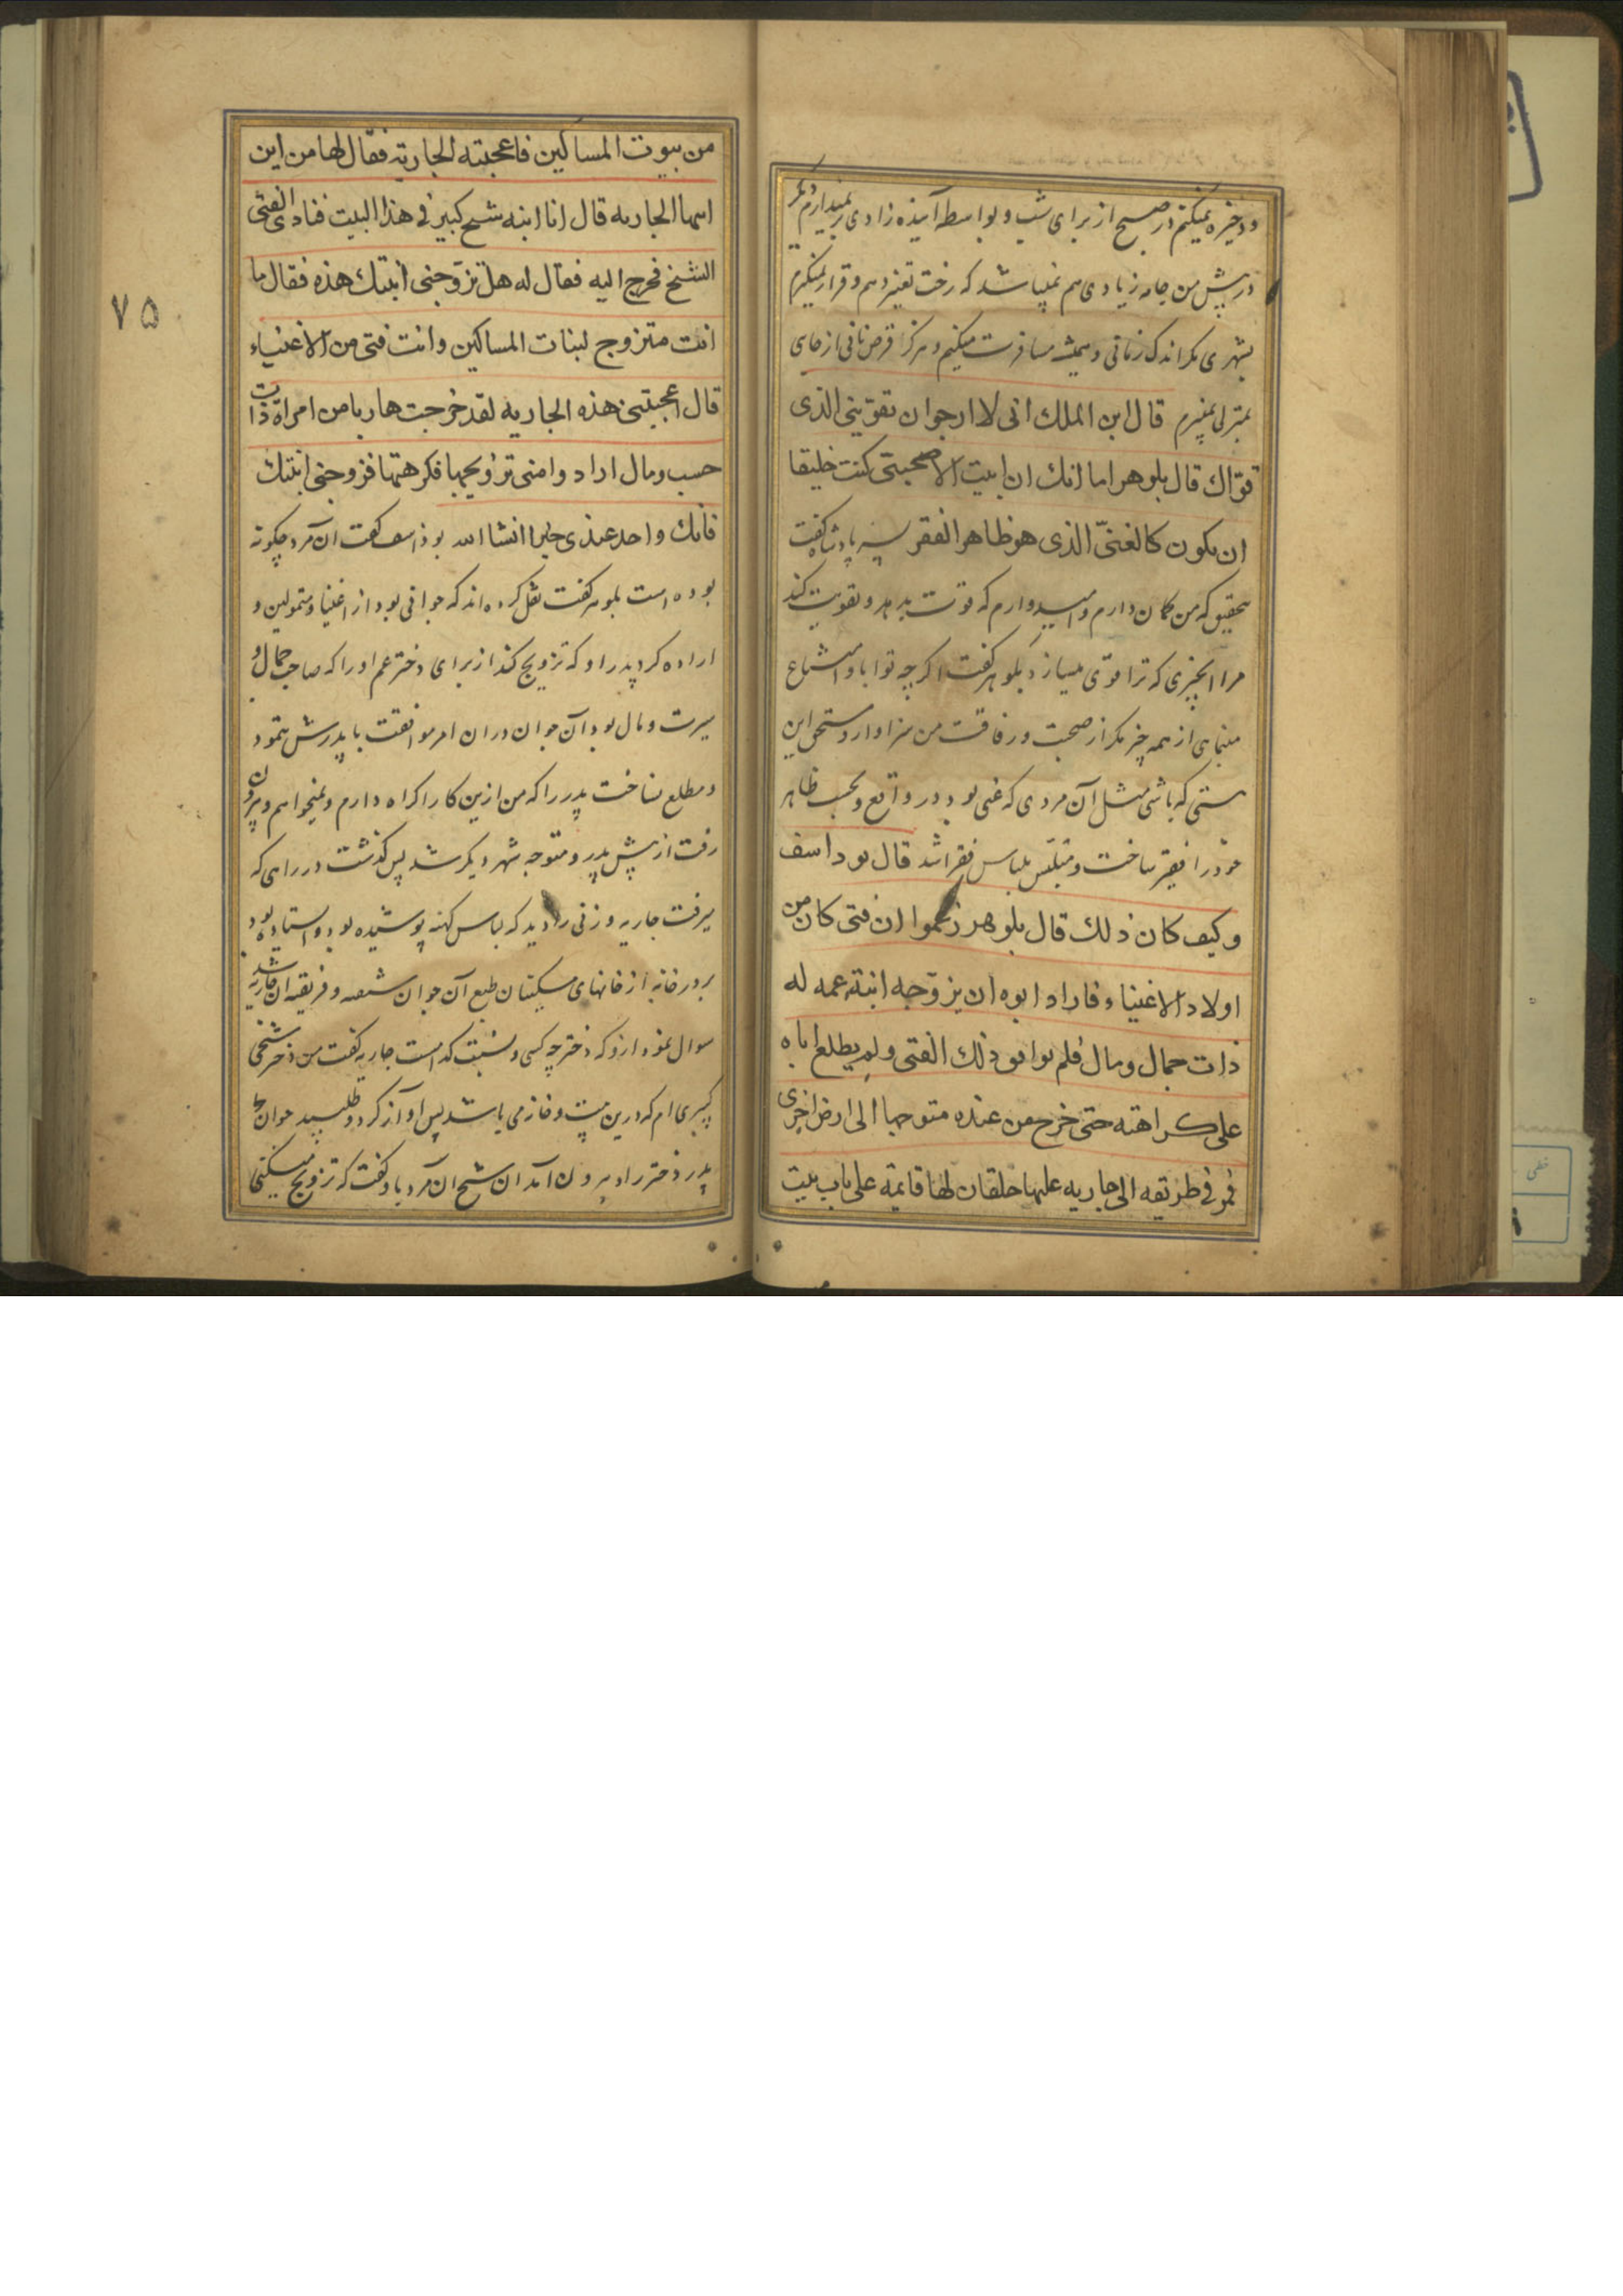 و ذخیره نمیکنم در صبح از برای شب و بواسطه آینده زادی بر نمیدارم و
در پیش من جامه زیادی هم نمیباشد که رخت تغییر دهم و قرار نمیگیرم
بشهری مگر اندک زمانی و همیشه مسافرت میکنم و هرگز قرص نانی از جای
بمنزلی نمیبرم قال ابن الملك انى لا ارجوان تقوّينى الذى
قوّاك قال بلوهر اما انك ان ابيت الا صحبتى كنت خليقا
ان يكون كالغنىّ الذى هو ظاهر الفقر پسر پادشاه گفت
بتحقیق که من گمان دارم و امیدوارم که قوت بدهد و تقویت کند
مرا آنچیزی که ترا قوّی میسازد بلوهر گفت اگر چه تو ابا و امتناع
مینمای از همه چیز مگر از صحبت و رفاقت من سزاوار و مستحق این
هستی که باشی مثل آن مردی که غنی بود در واقع و بحسب ظاهر
خود را فقیر ساخت و متلبّس بلباس فقرا شد قال بوداسف
وكيف كان ذلك قال بلوهر زعموا ان فتى كان من
اولاد الاغنياء فاراد ابوه ان يزوّجه ابنة عمه له
ذات جمال ومال فلم يوافق ذلك الفتى ولم يطلع اباه
على كراهته حتى خرج من عنده متوجها الى ارض اخرى
فمر فى طريقه الى جاريه عليها خلقان لها قايمة على باب بيت
من بيوت المساكين فاعجبته الجارية فقال لها من اين
ايها الجاريه قال انا ابنه شيخ كبير فى هذا البيت فنادى الفتى
الشيخ فخرج اليه فقال له هل تزوّجنى ابنتك هذه فقال ما
انت متزوج لبنات المساكين وانت فتى من الاغنياء
قال اعجبتنى هذه الجاريه لقد خرجت هاربا من امراة ذات
حسب ومال اراد وا منى تزويجها فكرهتها فزوجنى ابنتك
فانك واجد عندى خيرا انشا الله بوذاسف گفت آن مرد چگونه
بوده است بلوهر گفت نقل کرده اند که جوانی بود از اغنیا و متمولین و
اراده کرد پدر او که تزویج کند از برای دختر عم او را که صاحب جمال و
سیرت و مال بود آن جوان در ان امر موافقت با پدرش ننمود
و مطلع نساخت پدر را که من ازین کار اکراه دارم و نمیخواهم و بیرون
رفت از پیش پدر و متوجه شهر دیگر شد پس گذشت در راهی که
میرفت جاریه و زنی را دید که لباس کهنه پوشیده بود و استاده بود
بر در خانه از خانهای مسکینان طبع آن جوان شیفته و فریفته آن جاریه شد
سوال نمود ازو که دختر چه کسی و نسبت کدامست جاریه گفت من دختر شیخی
کبیری ام که درین بیت و خانه می باشد پس آواز کرد و طلبید جوان
پدر دختر را و بیرون آمد آن شیخ آن مرد باو گفت که تزویج میکنی
۷۵